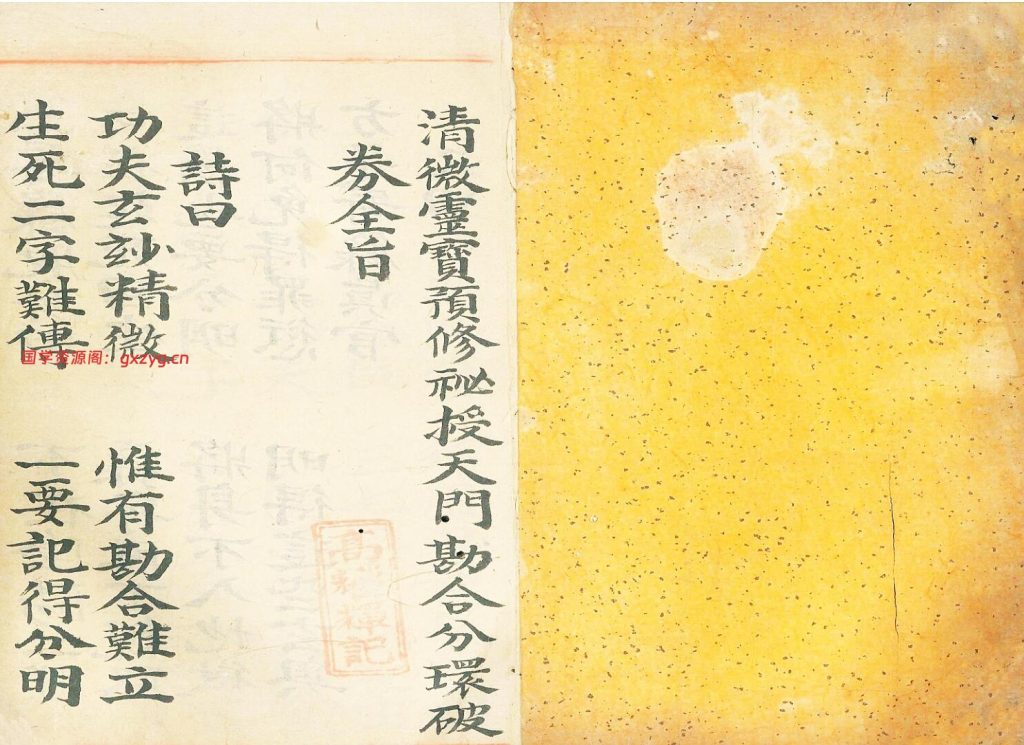 清微靈寶預修祕授天門勘合分環破
券全旨
詩曰
功夫玄妙精微　惟有勘合難立
生死二字難傳　一要記得分明
国学资源阁：gxzyg.cn